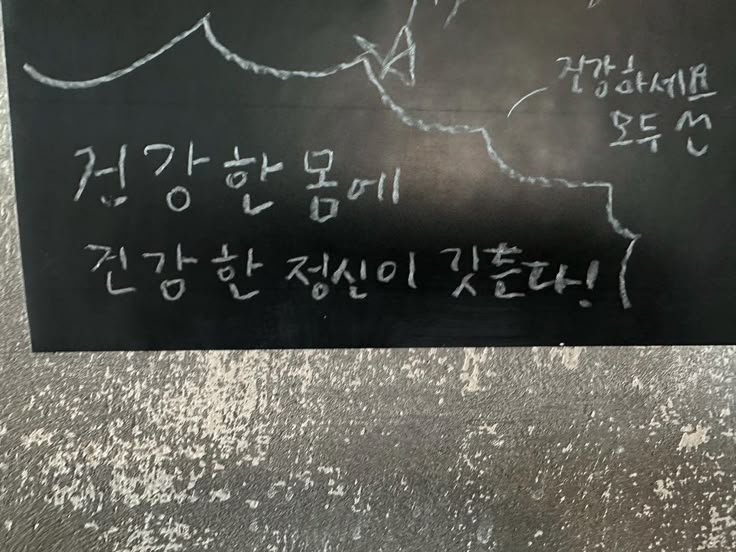 건강하세요
모두
건강한 몸에
건강한 정신이 깃든다!